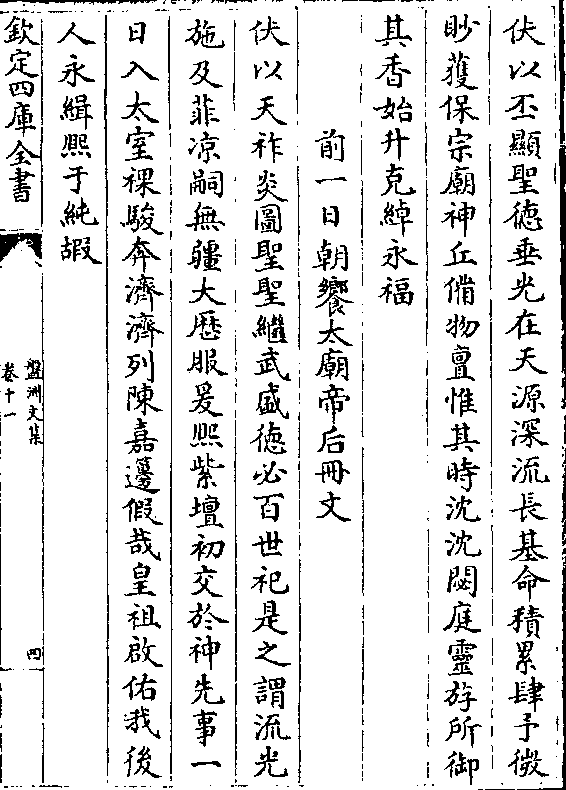 伏以丕顯聖徳垂光在天源深流長基命積累肆予微
眇獲保宗廟神丘備物亶惟其時沈沈閟庭靈斿所御
其香始升克綽永福
前一日朝饗太廟帝后冊文
伏以天祚炎圖聖聖繼武盛徳必百世祀是之謂流光
施及菲凉嗣無疆大歴服爰熙紫壇初交於神先事一
日入太室祼駿奔濟濟列陳嘉籩假哉皇祖啟佑我後
人永緝熙于純嘏
欽定四庫全書
盤洲文集
卷十一
四